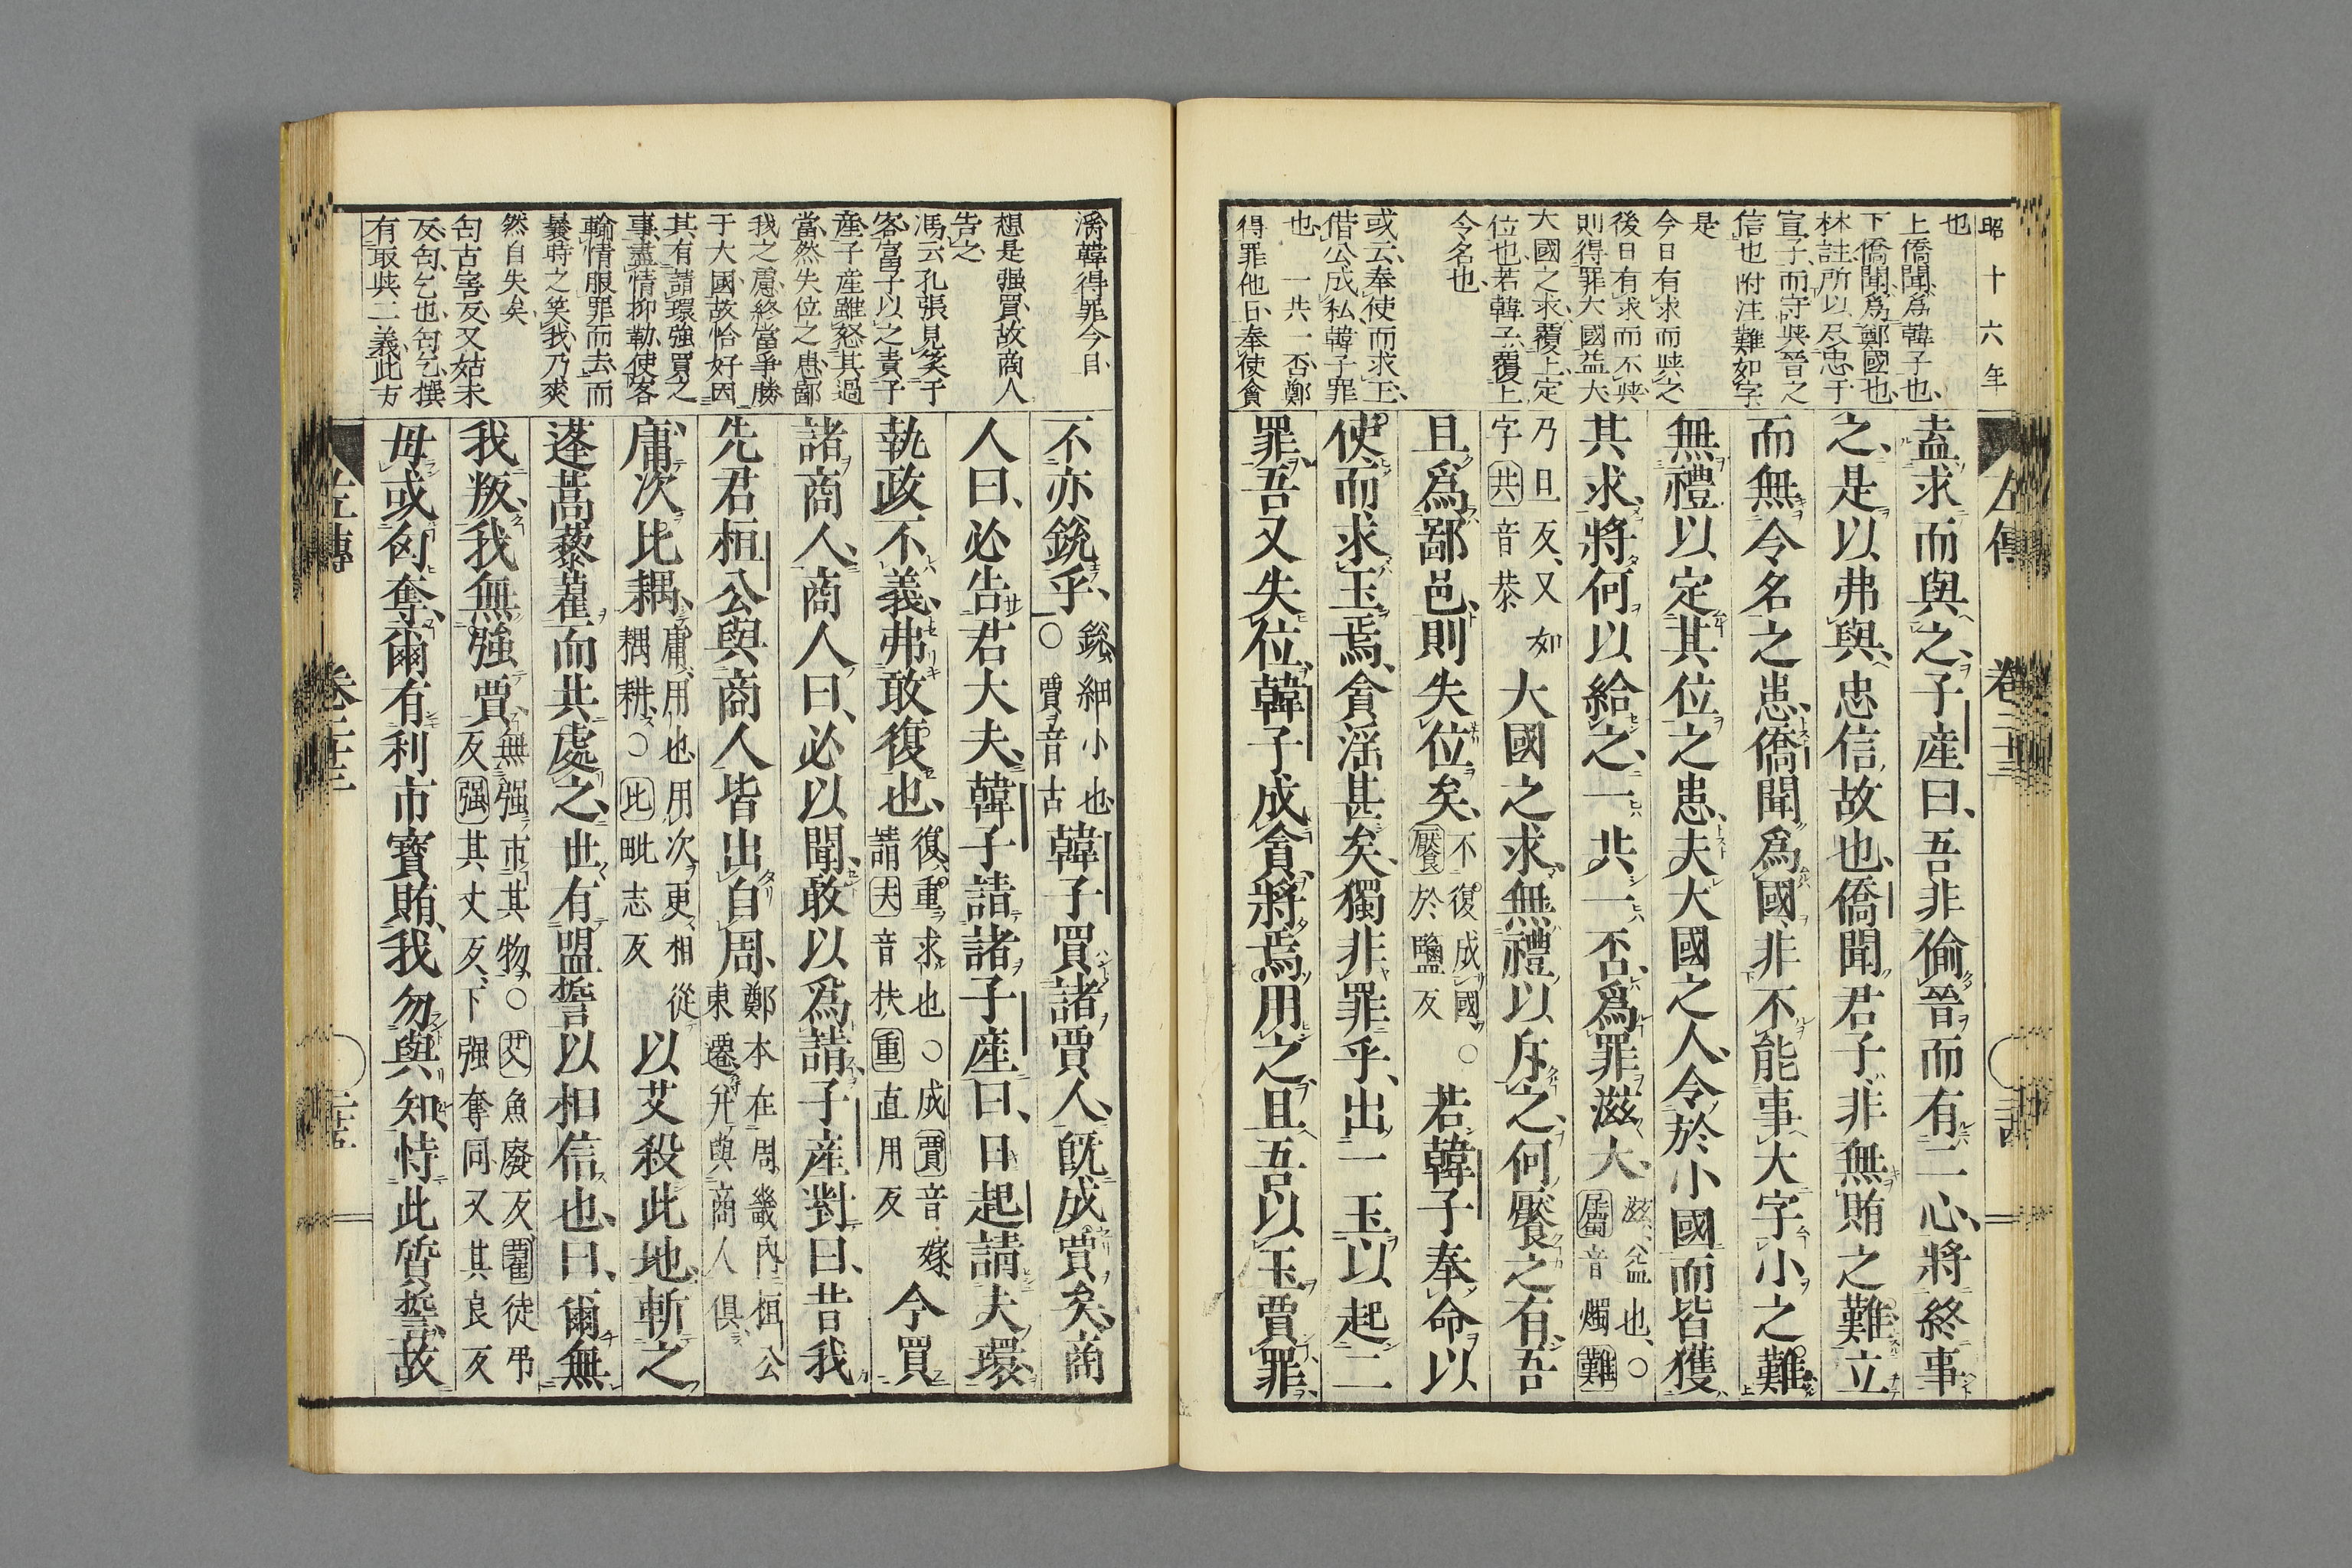 昭十六年
也
上僑聞爲韓子也
下僑聞爲鄭國也
林註所以尽忠于
宣子而守㒷晉之
信也附注難如字
是
今日有求而㒷之
後日有求而不㒷
則得罪大國益大
大國之求覆上定
位也若韓子云覆上
令名也
或云奉使而求玉
偕公成私韓子罪
也一共一否鄭
得罪他日奉使貪
左傳 卷二十三
盍求而與之子產曰吾非偷晉而有二心將終事
之是以弗與忠信故也僑聞君子非無賄之難立
而無令名之患僑聞爲國非不能事大字小之難
無禮以定其位之患夫大國之人令於小國而皆獲
其求將何以給之一共一否爲罪滋大滋益也○
屬音燭難
乃旦反又如
字共音恭
大國之求無禮以斥之何饜之有吾
且爲鄙邑則失位矣不復成國○
饜於鹽反
若韓子奉命以
使而求玉焉貪淫甚矣獨非罪乎出一玉以起二
罪吾又失位韓子成貪將焉用之且吾以玉賈罪
瀆韓得罪今日
想是强買故商人
告之
馮云孔張見笑于
客富子以之責子
產子產雖怒其過
當然失位之患鄙
我之慮終當爭勝
于大國故恰好因
其有請環強買之
事盡情抑勒使客
輸情服罪而去而
曩時之笑我乃爽
然自失矣
匄古害反又姑未
反匄乞也匄乞撰
有取㒷二義此方
不亦銳乎銳細小也
○賈音古
韓子買諸賈人旣成賈矣商
人曰必告君大夫韓子請諸子產曰日起請夫環
執政不義弗敢復也復重求也○成賈音嫁
請夫音扶重直用反
今買
諸商人商人曰必以聞敢以爲請子產對曰昔我
先君桓公與商人皆出自周鄭本在周畿內桓公
東遷并與商人俱
庸次比耦庸用也用次更相從
耦耕○比毗志反
以艾殺此地斬之
蓬蒿藜藿而共處之世有盟誓以相信也曰爾無
我叛我無強賈無强市其物○艾魚廢反藿徒弔
反强其丈反下强奪同又其良反
毋或匄奪爾有利市寶賄我勿與知恃此質誓故
左傳 卷二十三